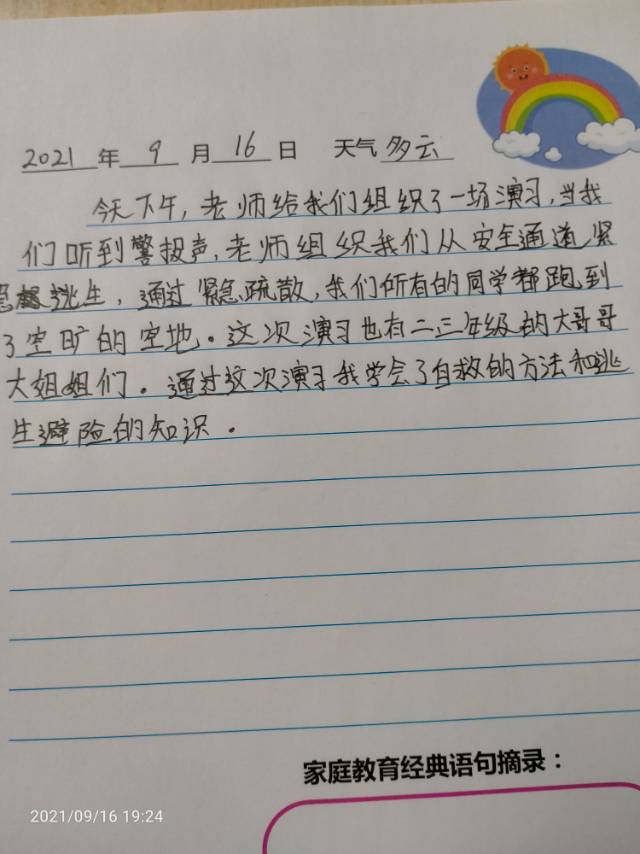 2021 年 9 月 16 日 天气 多云
今天下午，老师给我们组织了一场演习，当我
们听到警报声，老师组织我们从安全通道紧
急逃生，通过紧急疏散，我们所有的同学都跑到
了空旷的空地。这次演习也有二三年级的大哥哥
大姐姐们。通过这次演习我学会了自救的方法和逃
生避险的知识。
家庭教育经典语句摘录：
2021/09/16 19:24